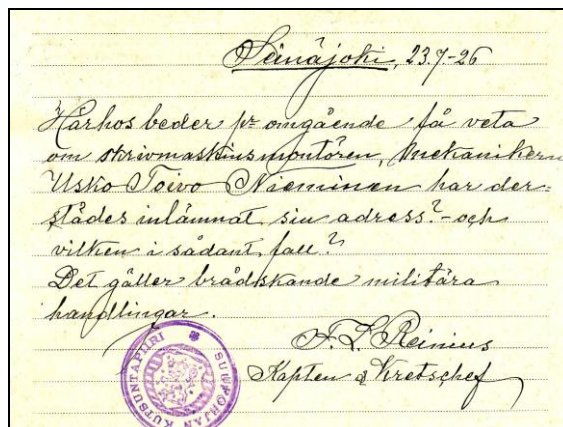 Seinäjoki, 23.7-26
Härhos beder pr omgående få veta
om skrivmaskinsmontören, mekanikern
Usko Toivo Nieminen har der-
städes inlämnat sin adress? - och
vilken i sådant fall?
Det gäller brådskande militära
handlingar.
Reinius
Kapten Kretschef
KUTSUNTAPIIRI